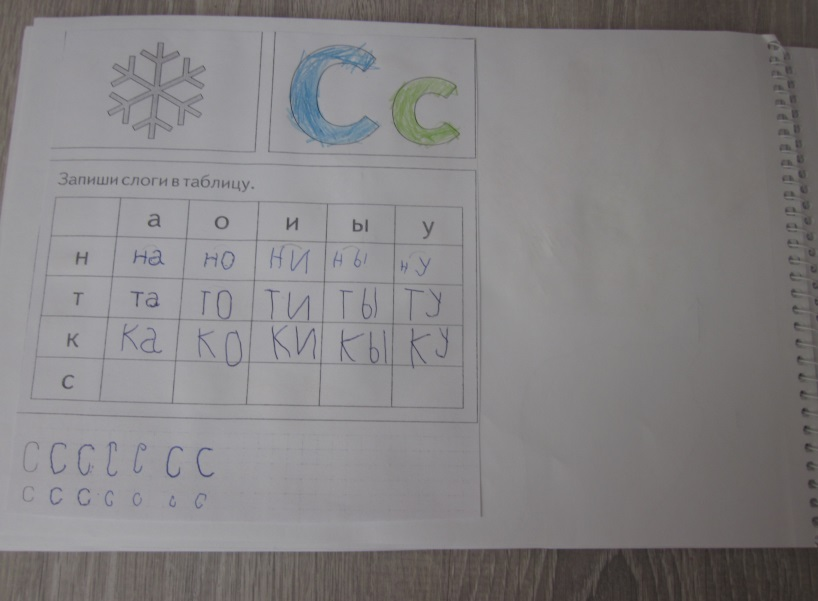 С с
Запиши слоги в таблицу.
а о и ы у
н на но ни ны ну
т та то ти ты ту
к ка ко ки кы ку
с
С С С С С С С
с с с с с с с